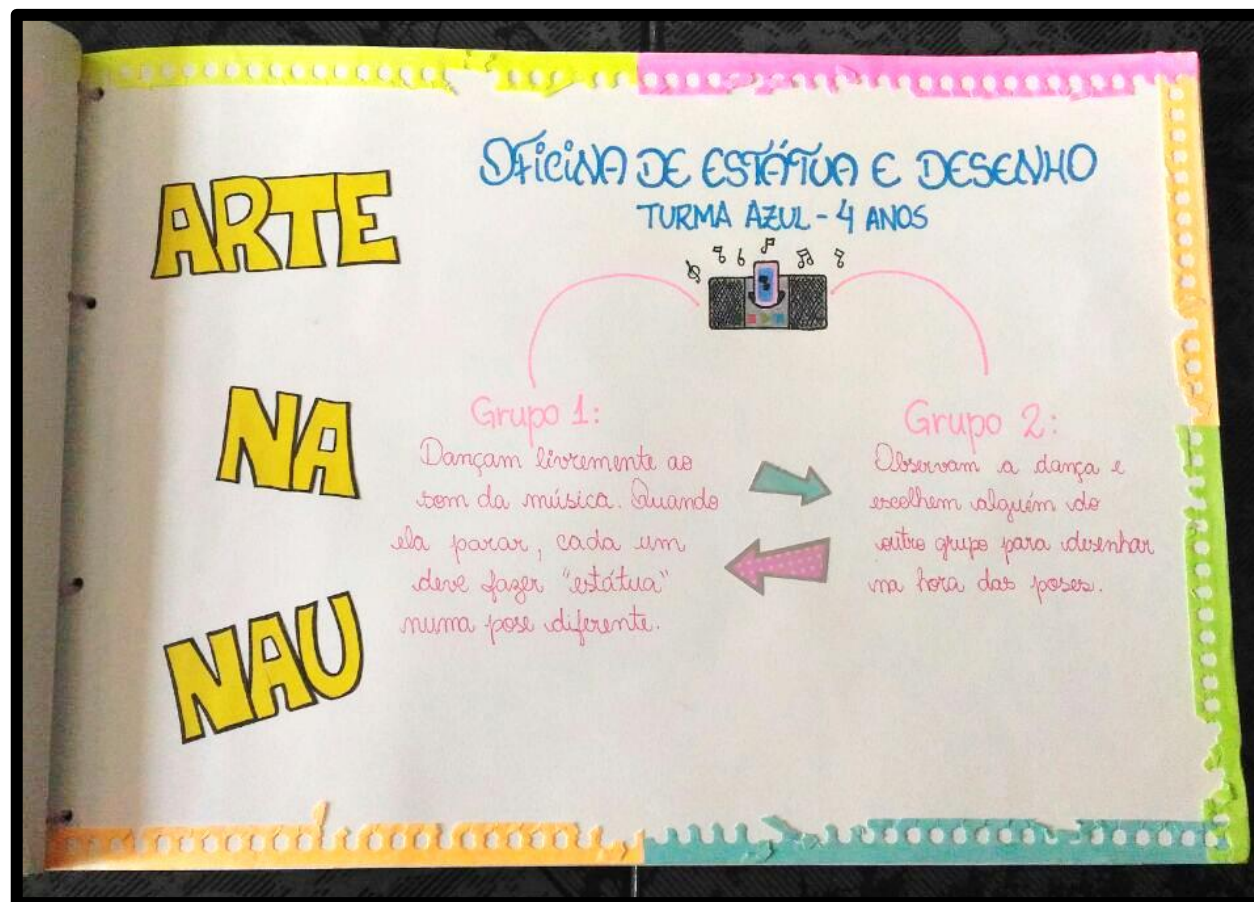 ARTE
NA
NAU
OFICINA DE ESTÁTUA E DESENHO
TURMA AZUL - 4 ANOS
Grupo 1:
Dançam livremente ao
som da música. Quando
ela parar, cada um
deve fazer "estátua"
numa pose diferente.
Grupo 2:
Observam a dança e
escolhem alguém do
outro grupo para desenhar
na hora das poses.